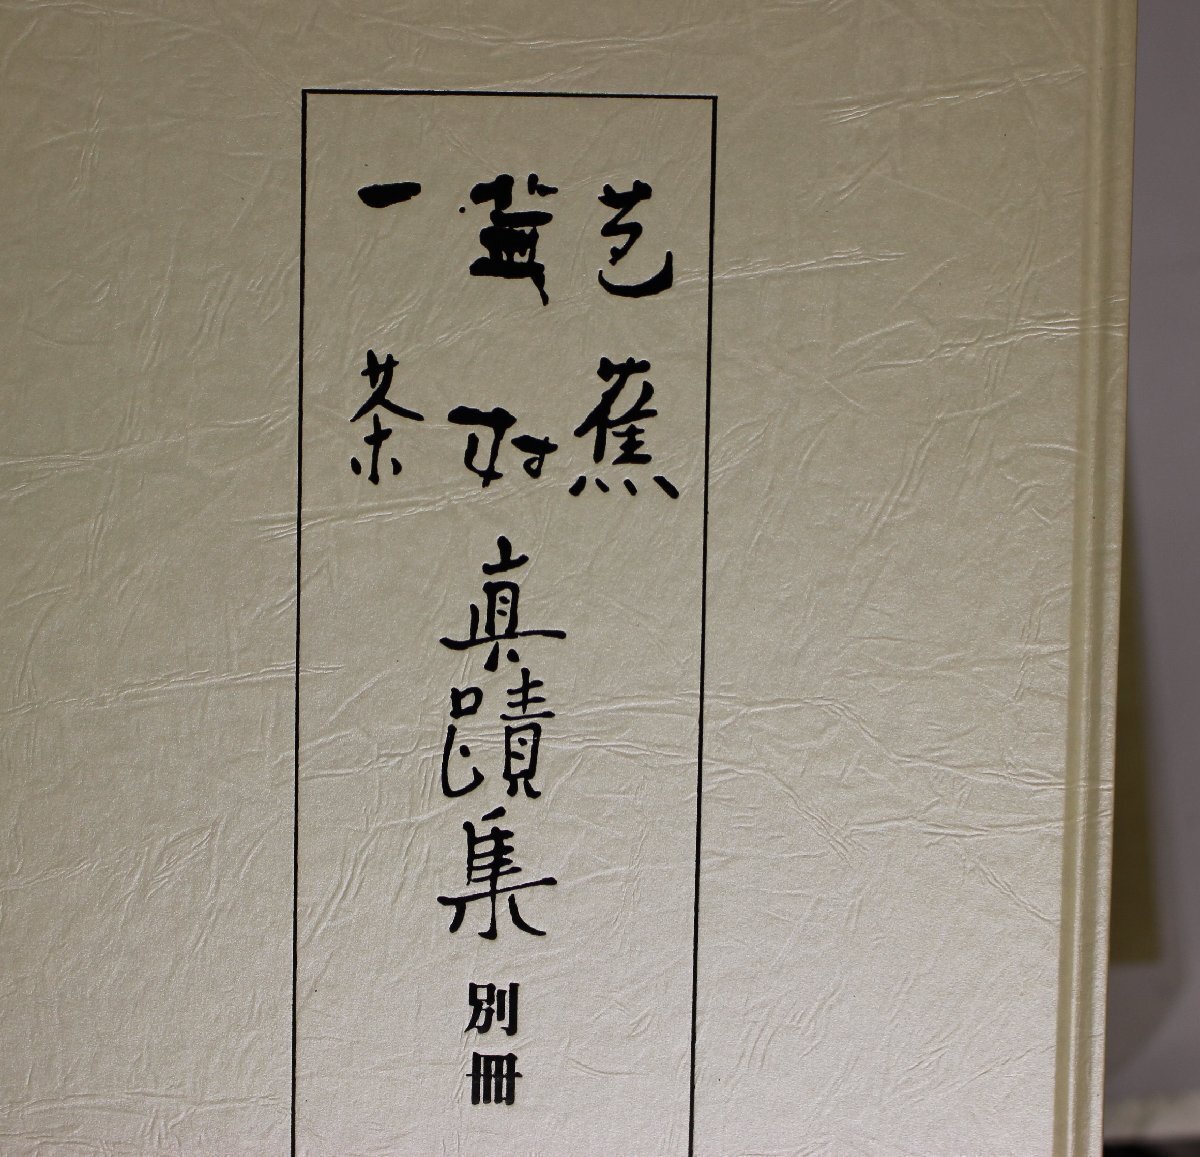 芭蕉
蕪村
一茶
真蹟集
別冊